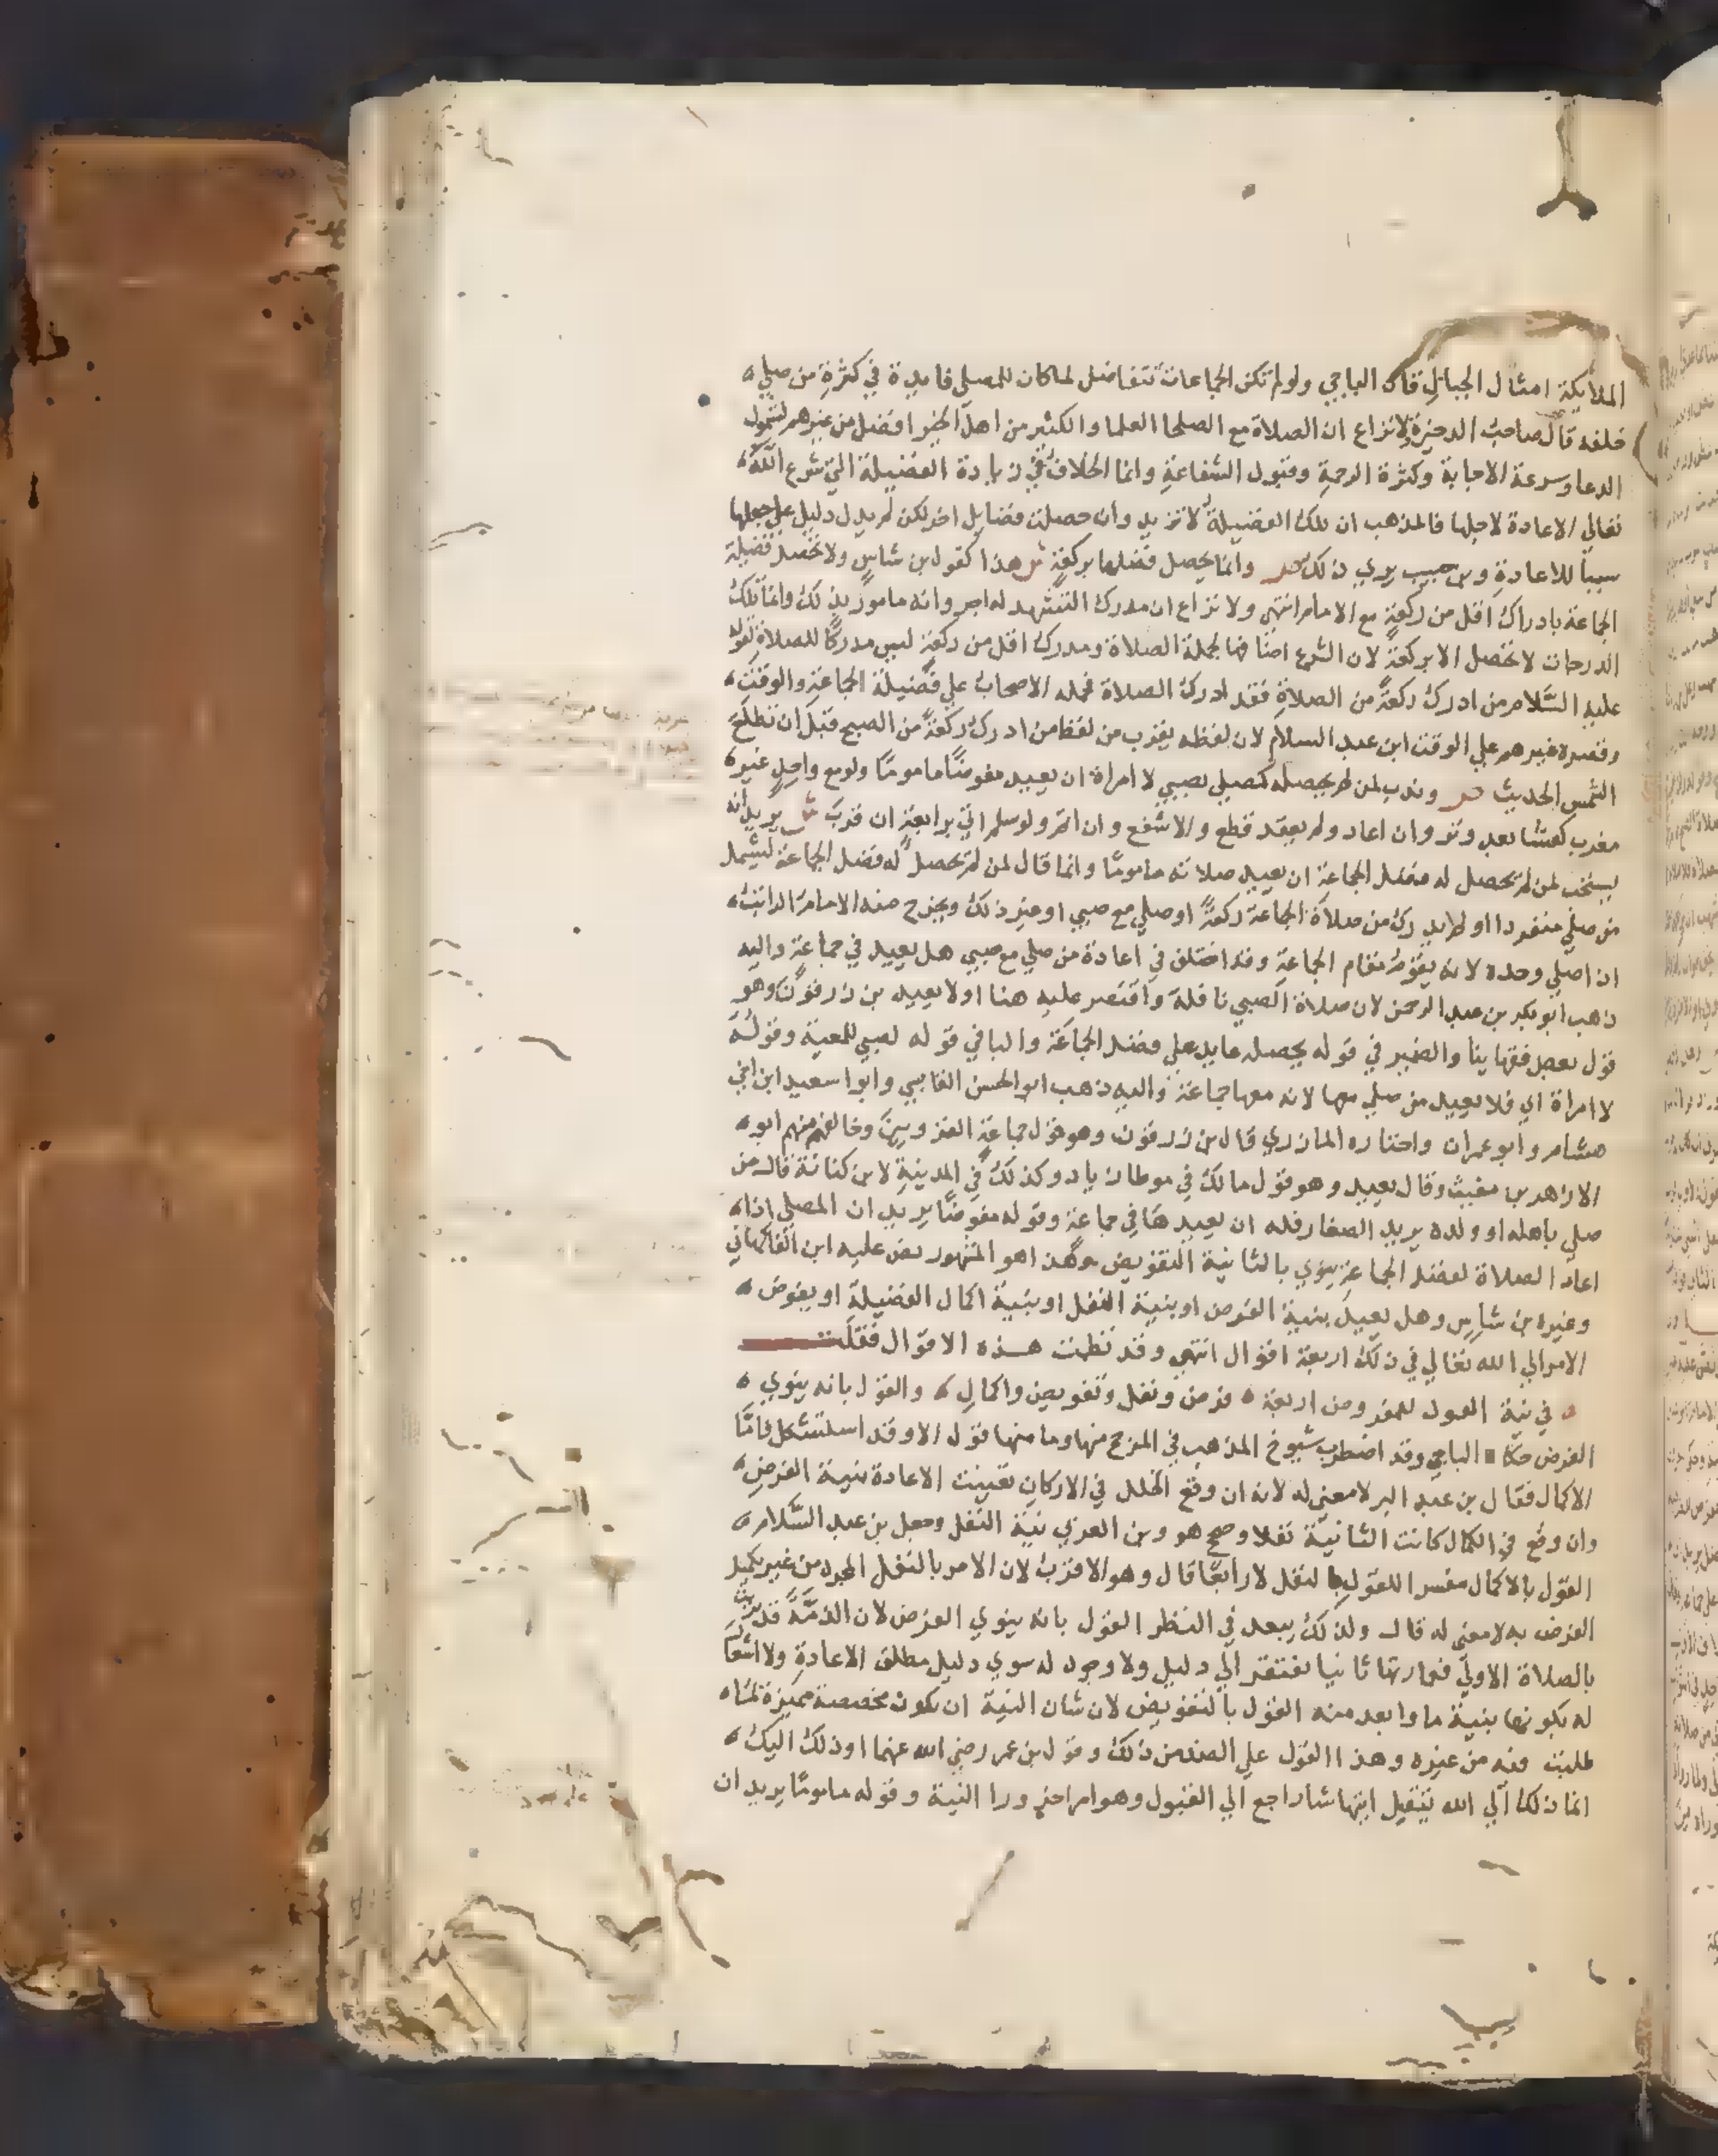 الملايكة امثال الجبال قال الباجي ولو لم تكن الجماعات تتفاضل لما كان للمصلي فايدة في كثرة من صلي
خلفه قال صاحب الدخيرة لا نزاع ان الصلاة مع الصلحا العلما والكثير من اهل الخير افضل من غيرهم لشمول
الدعا وسرعة الاجابة وكثرة الرحمة وقبول الشفاعة وانما الخلاف في زيادة الفضيلة التي شرع الله
تعالي الاعادة لاجلها فالمذهب ان تلك الفضيلة لا تزيد وان حصلت فضايل اخر لكن لم يدل دليل علي جعلها
سببا للاعادة وبن حبيب يري ذلك ص وانما يحصل فضلها بركعة ش هذا كقول بن شاس ولا تحصل فضيلة
الجماعة بادراك اقل من ركعة مع الامام انتهي ولا نزاع ان مدرك التشهد له اجر وانه مامور بذلك وانما تلك
الدرجات لا تحصل الا بركعة لان الشرع اضافها لجملة الصلاة ومدرك اقل من ركعة ليس مدركا للصلاة لقوله
عليه السلام من ادرك ركعة من الصلاة فقد ادرك الصلاة فحمله الاصحاب علي فضيلة الجماعة والوقت
وقصره غيرهم علي الوقت ابن عبد السلام لان لفظه يقرب من لفظ من ادرك ركعة من الصبح قبل ان تطلع
الشمس الحديث ص وندب لمن لم يحصله كمصلي بصبي لا امراة ان يعيد مفوضا ماموما ولو مع واحد غير
مغرب كعشا بعد وتر وان اعاد ولم يعقد قطع والا شفع وان اتم ولو سلم اتي برابعة ان قرب ش يريد انه
يستحب لمن لم تحصل له فضل الجماعة ان يعيد صلاته ماموما وانما قال لمن لم تحصل له فضل الجماعة ليشمل
من صلي منفردا او لم يدرك من صلاة الجماعة ركعة او صلي مع صبي او غير ذلك ويخرج منه الامام الراتب
ان اصلي وحده لانه يقوم مقام الجماعة وقد اختلف في اعادة من صلي مع صبي هل يعيد في جماعة واليه
ذهب ابو بكر بن عبد الرحمن لان صلاة الصبي نافلة واقتصر عليه هنا او لا يعيد بن زرقون وهو
قول بعض فقهاينا والضمير في قوله يحصله عايد علي فضل الجماعة والبا في قوله لصبي للمعية وقوله
لا امراة اي فلا يعيد من صلي معها لانه معها جماعة واليه ذهب ابو الحسن القابسي وابوا سعيد ابن اخي
هشام وابو عمران واختاره المازري قال بن زرقون وهو قول جماعة القرويين وخالفهم منهم ابو
الازاهر بن مغيث وقال يعيد وهو قول مالك في موطا زياد وكذلك في المدينة لابن كنانة قال من
صلي باهله او ولده يريد الصغار فله ان يعيدها في جماعة وقوله مفوضا يريد ان المصلي اذا
اعاد الصلاة لفضل الجماعة ينوي بالثانية التفويض وهذا هو المشهور نص عليه ابن الفاكهاني
وغيره بن شاس وهل يعيد بنية الفرض او بنية النفل او بنية اكمال الفضيلة او يفوض
الامر الي الله تعالي في ذلك اربعة اقوال انتهي وقد نظمت هذه الاقوال فقلت
في نية العود للمفروض اربعة فرض ونفل وتفويض واكمال والقول بانه ينوي
الفرض حكاه الباجي وقد اضطرب شيوخ المذهب في المرجح منها وما منها قول الا وقد استشكل فاما
الاكمال فقال بن عبد البر لا معني له لانه ان وقع الخلل في الاركان تعينت الاعادة بنية الفرض
وان وقع في الكمال كانت الثانية نفلا وصحح هو وبن العربي نية النفل وجعل بن عبد السلام
القول بالاكمال مفسرا للقول بالنفل لا رابعا قال وهو الاقرب لان الامر بالنفل المجرد من غير تكميل
الفرض به لا معني له قال ولذلك يبعد في النظر القول بانه ينوي الفرض لان الذمة قد بريت
بالصلاة الاولي فعمارتها ثانيا يفتقر الي دليل ولا وجود له سوي دليل مطلق الاعادة ولا اشعار
له بكونها بنية ما وابعد منه القول بالتفويض لان شان النية ان تكون مخصصة مميزة لما
طلبت منه من غيره وهذا القول علي الضد من ذلك وقول بن عمر رضي الله عنهما اوذلك اليك
انما ذلك الي الله يتقبل ايتها شا راجع الي القبول وهو امر اخر ورا النية وقوله ماموما يريد ان